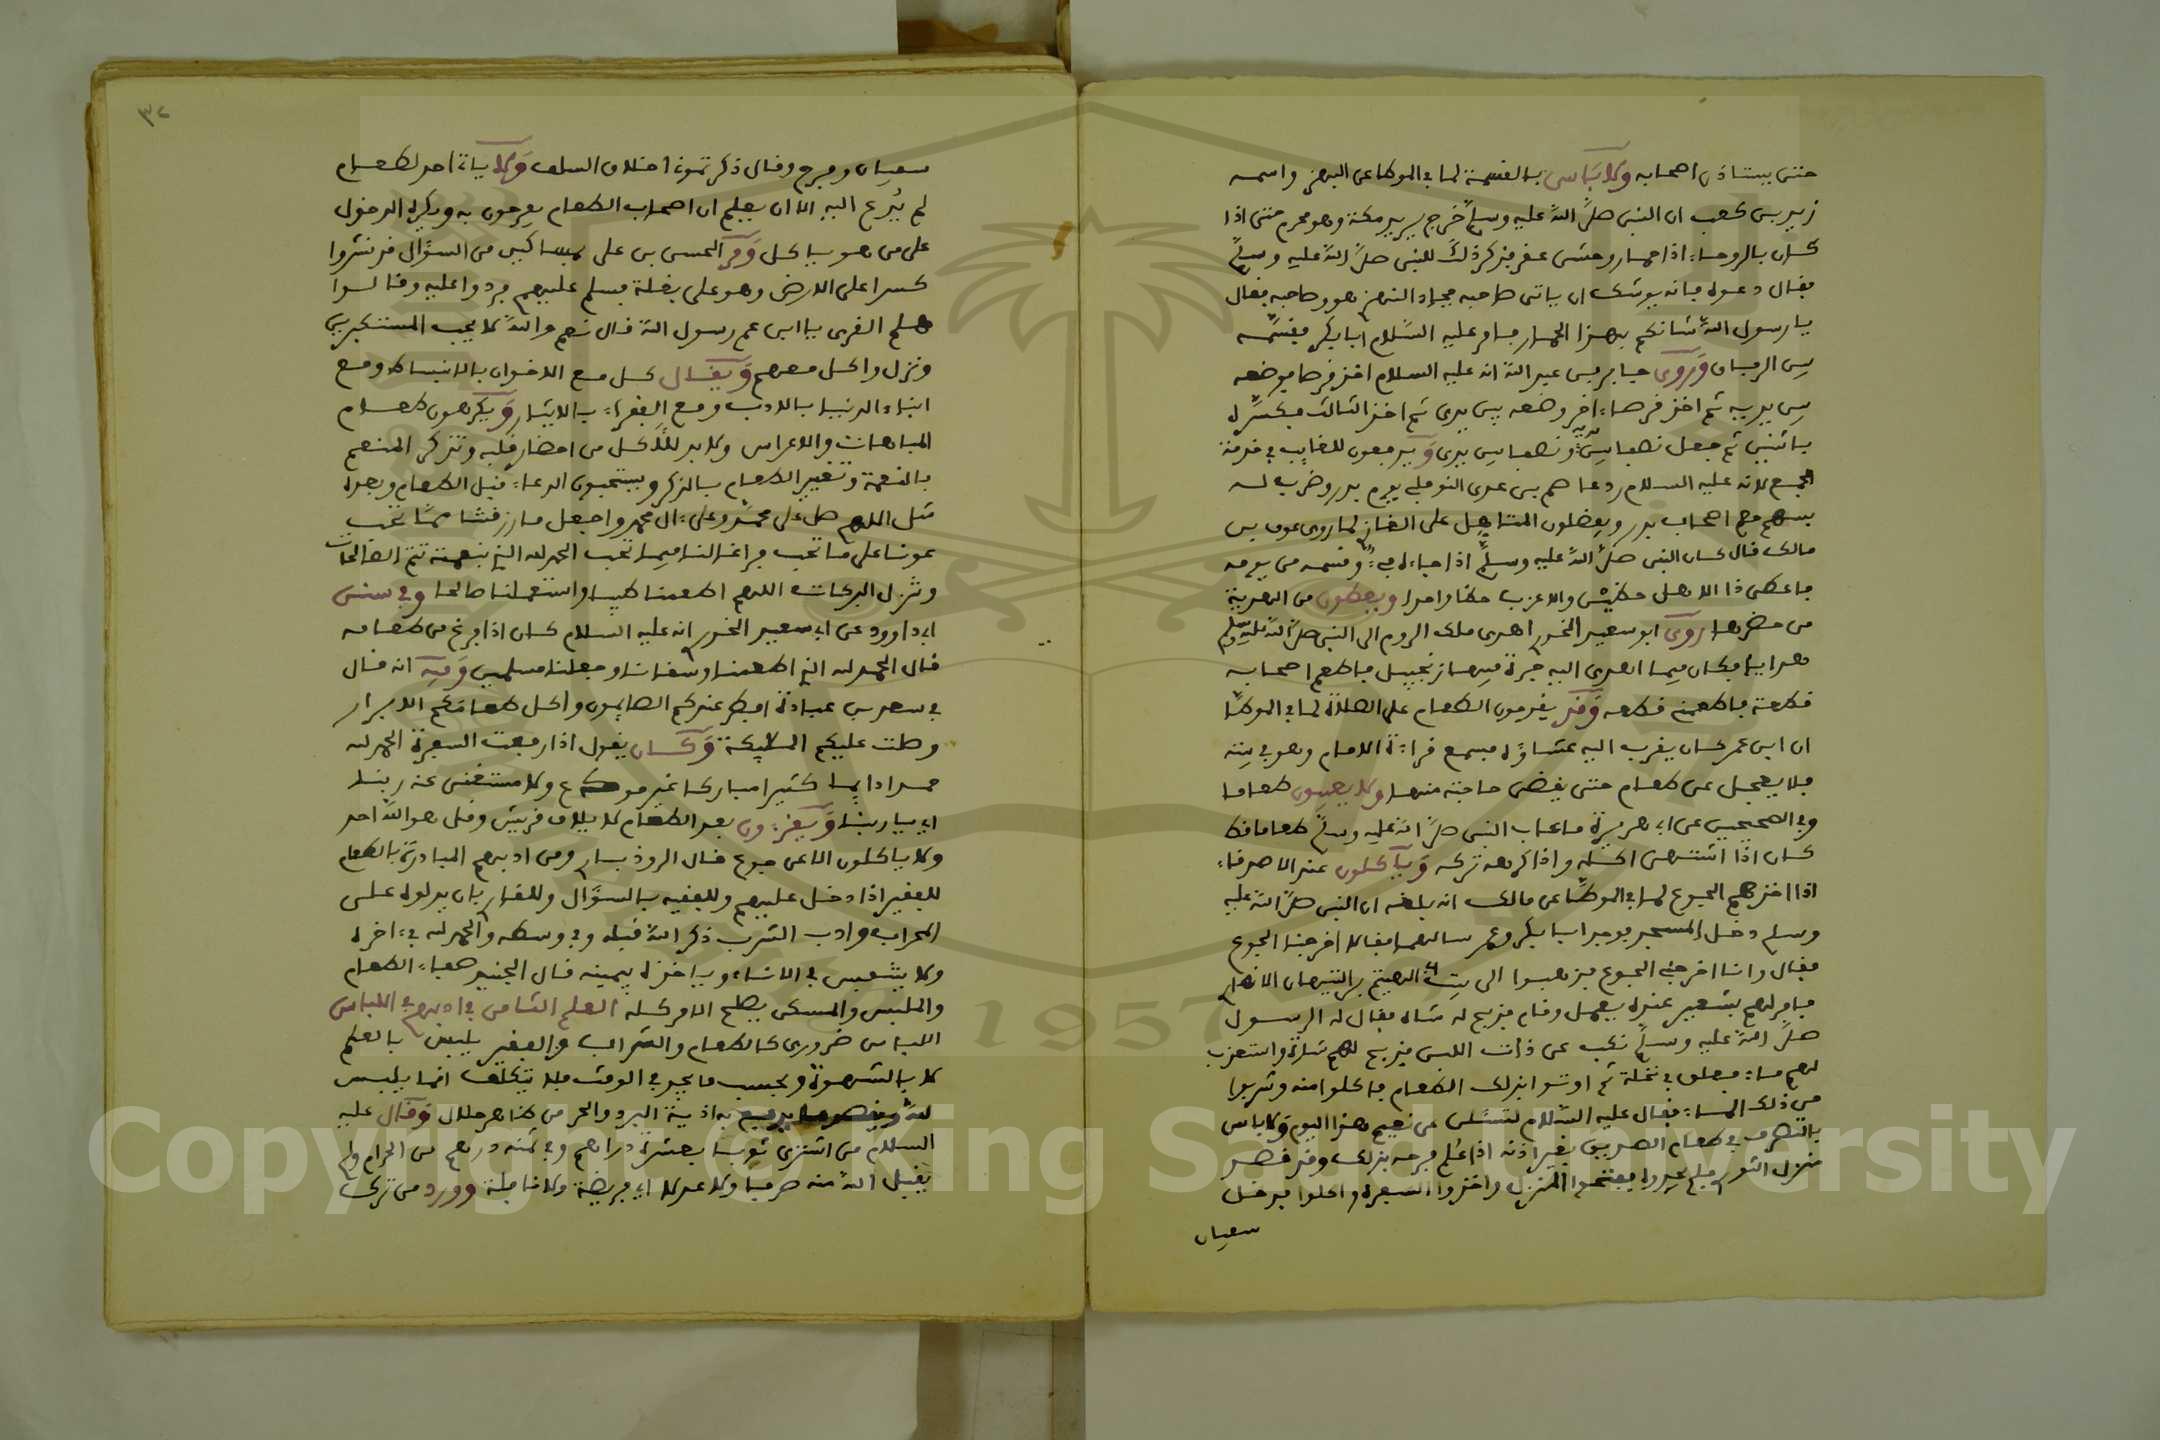 حتى يستاذن اصحابه ولا باس بالقسمة لما في الموطا عن البهزي واسمه
زيد بن كعب ان النبي صلى الله عليه وسلم خرج يريد مكة وهو محرم حتى اذا
كان بالروحاء اذا حمار وحشي عقير فذكر ذلك للنبي صلى الله عليه وسلم
فقال دعوه فانه يوشك ان ياتي صاحبه فجاء البهزي وهو صاحبه فقال
يا رسول الله شانكم بهذا الحمار فامر عليه السلام ابا بكر فقسمه
بين الرفاق وروى جابر بن عبد الله انه عليه السلام اخذ قرصا فوضعه
بين يديه ثم اخذ قرصا اخر وضعه بين يدي ثم اخذ الثالث فكسره
باثنين ثم جعل نصفا بين يديه ونصفا بين يدي ويرفعون للغايب في خدمة
الجمع لانه عليه السلام دعا هم بن عدي النوفلي يوم بدر وضرب له
بسهم مع اصحاب بدر ويفضلون المتاهل على العازب لما روى عوف بن
مالك قال كان النبي صلى الله عليه وسلم اذا جاءه فيء وقسمه من يومه
فاعطى ذا الاهل حظين والاعزب حظا واحدا ويعطون من الهدية
من حضرها روى ابو سعيد الخدري اهدى ملك الروم الى النبي صلى الله عليه وسلم
هدايا فكان فيما اهدى اليه جرة فيها زنجبيل فاطعم اصحابه
قطعة فاطعمني قطعه وقد يقدمون الطعام على الصلاة لما في الموطا
ان ابن عمر كان يقرب اليه عشاؤه فيسمع قراءة الامام وهو في بيته
فلا يعجل عن طعام حتى يقضي حاجته منها ولا يعيبون طعاما
وفي الصحيحين عن ابي هريرة ما عاب النبي صلى الله عليه وسلم طعاما قط
كان اذا اشتهى اكله واذا كرهه تركه وياكلون عند الاصدقاء
اذا اخذهم الجوع لما في الموطا عن مالك انه بلغه ان النبي صلى الله عليه
وسلم دخل المسجد فوجد ابا بكر وعمر سالهما فقالا اخرجنا الجوع
فقال وانا اخرجني الجوع فذهبوا الى بيت ابي الهيثم بن التيهان الانصاري
فامر لهم بشعير عنده يعمل وقام فذبح له شاه فقال له الرسول
صلى الله عليه وسلم نكب عن ذات اللبن فذبح لهم شاة واستعذب
لهم ماء فعلق في نخلة ثم اوتوا بذلك الطعام فاكلوا منه وشربوا
من ذلك الماء فقال عليه السلام لتسئلن عن نعيم هذا اليوم ولا باس
بالتصرف في طعام الصديق بغير اذنه اذا علم فرحه بذلك وقد قصد
منزل الثوري فلم يجدوه ففتحوا المنزل واخذوا السفرة واكلوا فدخل
سفيان
٣٢
سفيان وفرح وقال ذكرتموني اخلاق السلف ولا ياتي احد لطعام
لم يدع اليه الا ان يعلم ان اصحاب الطعام يفرحون به ويكره الدخول
على من هو ياكل ومر الحسن بن علي بمساكين من السؤال قد نشروا
كسرا على الارض وهو على بغلة فسلم عليهم فردوا عليه وقالوا
هلم القرى يا ابن عم رسول الله قال نعم والله لا يحب المستكبرين
ونزل واكل معهم ويقال كل مع الاخوان بالانبساط ومع
ابناء الدنيا بالادب ومع الفقراء بالايثار ويكرهون طعام
المباهات والاعراس ولا بد للاكل من احضار قلبه وتذكر المنعم
بالنعمة وتغيير الطعام بالذكر ويستحبون الدعاء قبل الطعام وبعده
مثل اللهم صل على محمد وعلى ال محمد واجعل ما رزقتنا مما تحب
عونا على ما تحب فراغا لنا فيما تحب الحمد لله الذي بنعمته تتم الصالحات
وتنزل البركات اللهم اطعمنا طيبا واستعملنا صالحا وفي سنن
ابي داوود عن ابي سعيد الخدري انه عليه السلام كان اذا فرغ من طعامه
قال الحمد لله الذي اطعمنا وسقانا وجعلنا مسلمين وفيه انه قال
في سعد بن عبادة افطر عندكم الصايمون واكل طعامكم الابرار
وصلت عليكم الملايكة وكان يقول اذا رفعت السفرة الحمد لله
حمدا دايما كثيرا مباركا غير مودع ولا مستغنى عنه ربنا
اي يا ربنا ويقرءون بعد الطعام لايلاف قريش وقل هو الله احد
ولا ياكلون الا عن جوع قال الروذباري ومن ادبهم المبادرة بالطعام
للفقير اذا دخل عليهم وللفقيه بالسؤال وللقارئ بان يدلوه على
المحراب وادب الشرب ذكر الله قبله وفي وسطه والحمد لله في اخره
ولا يتنفس في الاناء وياخذه بيمينه قال الجنيد صفاء الطعام
والملبس والمسكن يصلح الامر كله الفصل الثامن في ادبهم في اللباس
اللباس ضروري كالطعام والشراب والفقير يلبس بالعلم
لا بالشهوة وبحسب ما يجد في الوقت فلا يتكلف انما يلبس
لله به اذية البرد والحر من طاهر حلال وقال عليه
السلام من اشترى ثوبا بعشرة دراهم وفي ثمنه درهم من الحرام لم
يقبل الله منه صرفا ولا عدلا اي فريضة ولا نافلة وورد من ترك